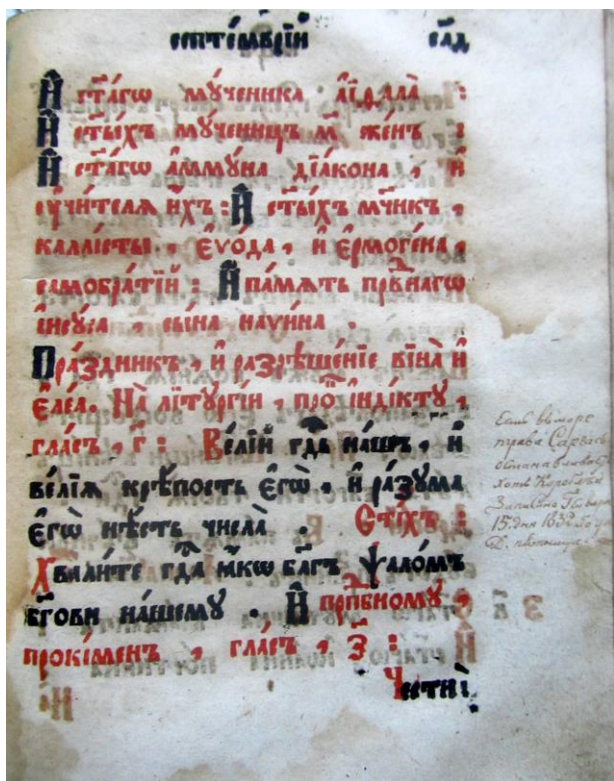 септе́мврїй
И҆ ст҃а́гѡ мꙋ́ченика а҆їѳа́ла :
И҆ ст҃ы́хъ мꙋ́ченицъ м҃ же́нъ :
И҆ ст҃а́гѡ а҆ммꙋ́на дїа́кона , и҆
ᲂу҆чи́телѧ и҆́хъ : И҆ ст҃ы́хъ мч҃нкъ ,
каллі́сты , є҆ѵо́да , и҆ є҆рмоге́на ,
самобра́тїй : И҆ па́мѧть прп҃бнагѡ
і҆исꙋ́са , сы́на наѵи́на .
Пра́здникъ , и҆ разрѣше́нїе вїна̀ и҆
є҆ле́а . На лїтꙋргі́и , про́к і҆ндікт꙽ꙋ ,
гла́съ , г҃ : Ве́лїй гдⷭ҇ь на́шъ , и҆
ве́лїѧ крѣ́пость є҆гѡ̀ , и҆ ра́зꙋма
є҆гѡ̀ нѣ́сть числа̀ . Сті́хъ :
Хвали́те гдⷭ҇а ꙗ҆́кѡ бл҃гъ ѱало́мъ
бг҃ови на́шемꙋ . И҆ прпⷣбномꙋ ,
прокі́менъ , гла́съ , з҃ :
Честна̀